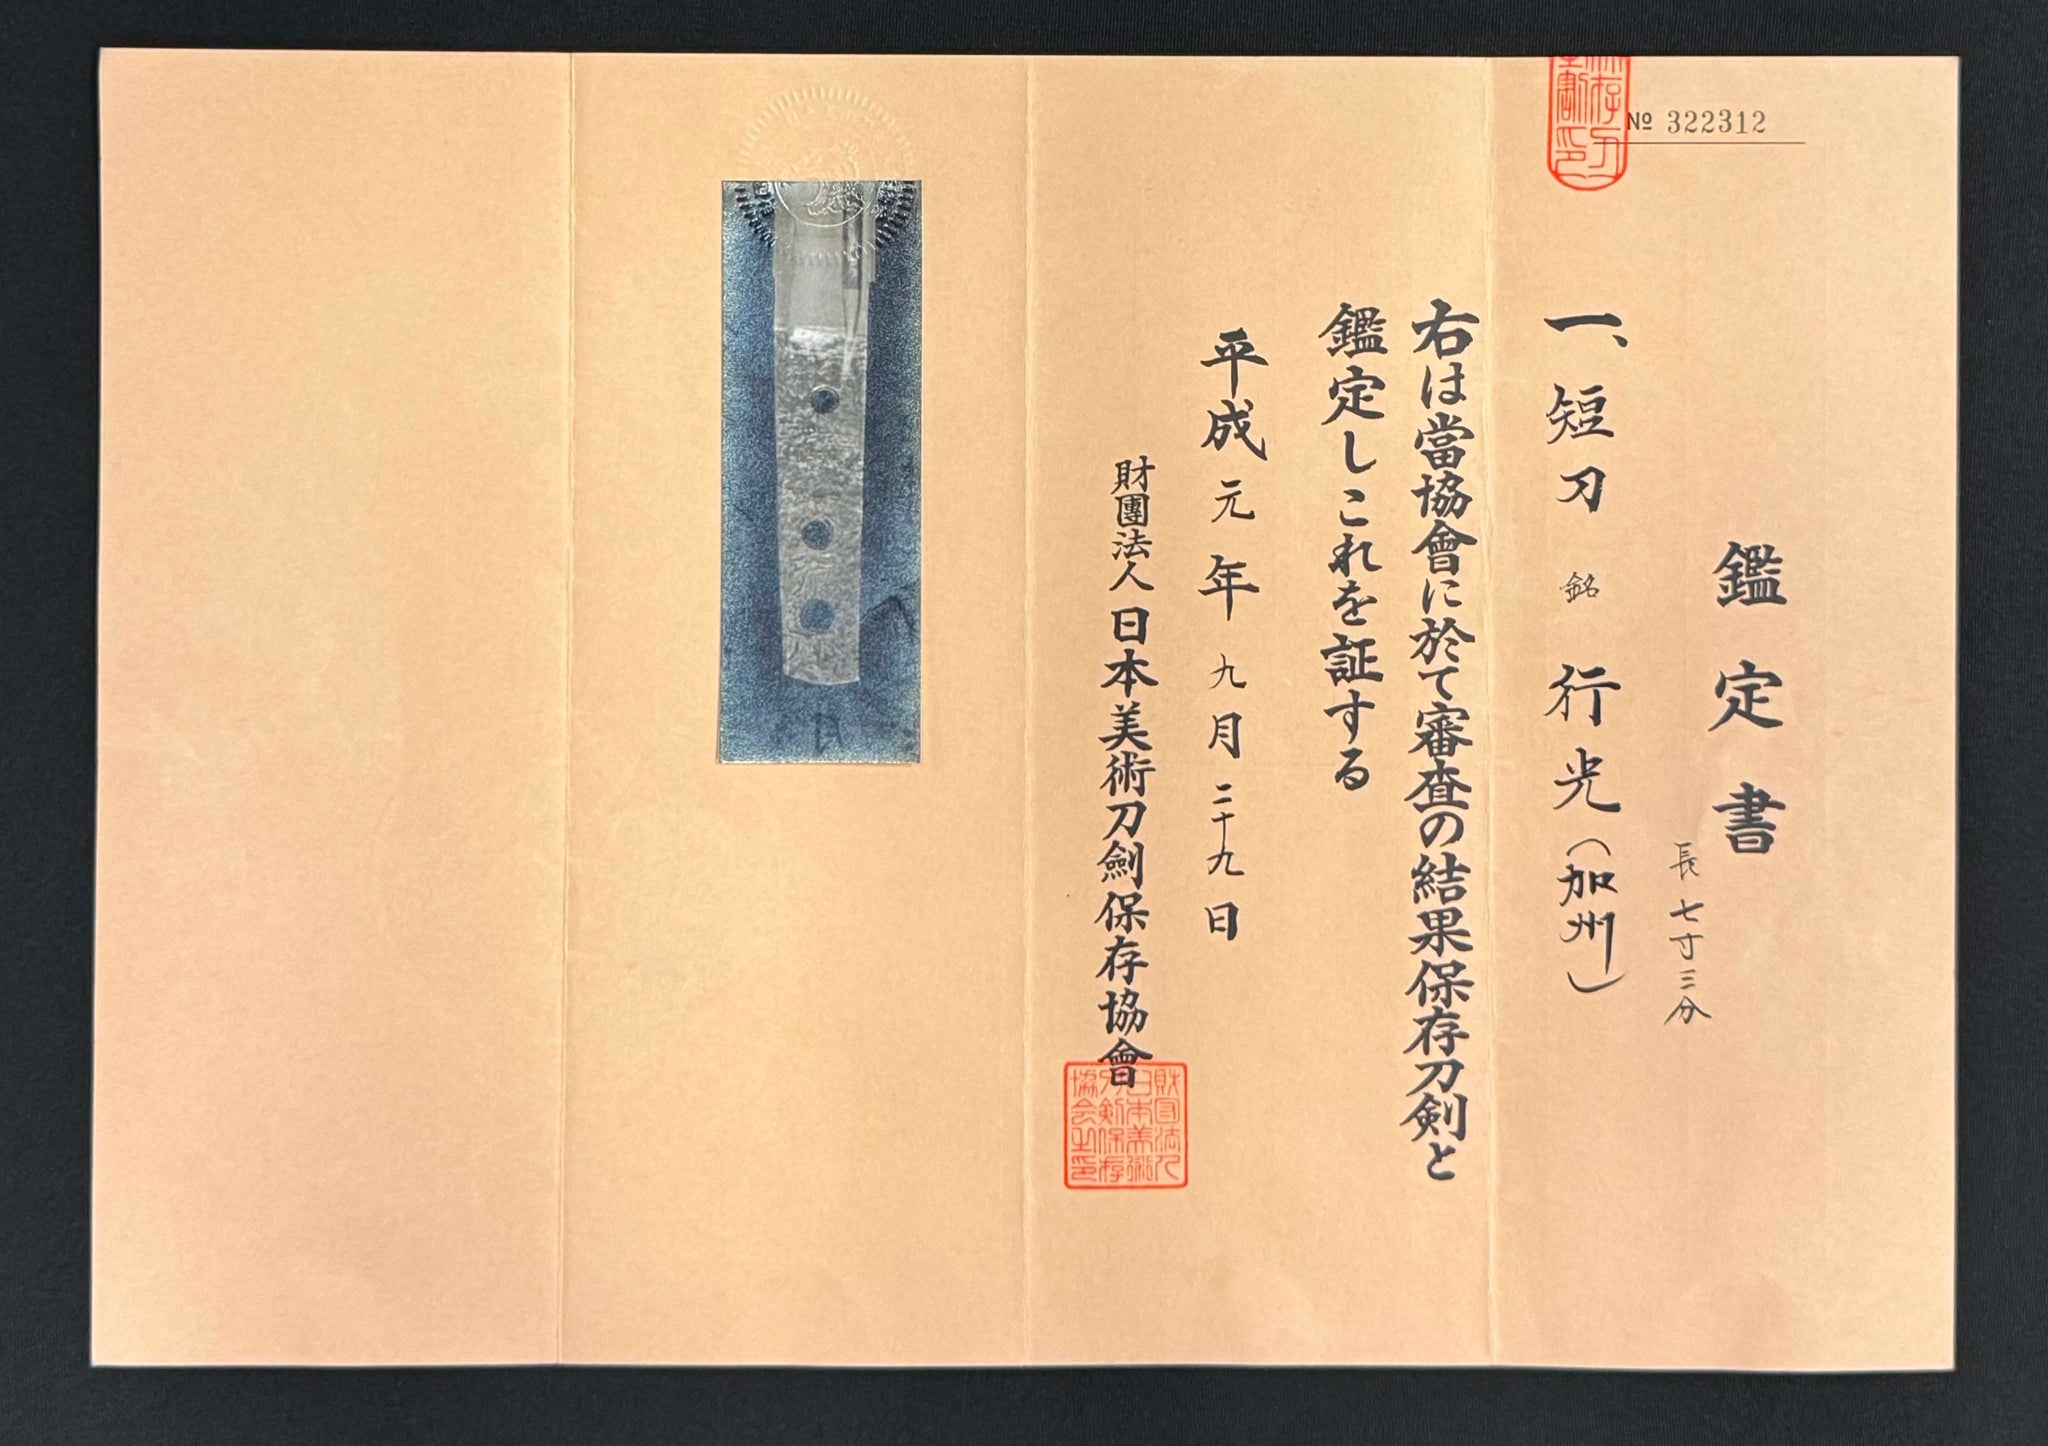 № 322312
鑑定書
長七寸三分
一、短刀 銘 行光（加州）
右は當協會に於て審査の結果保存刀剣と
鑑定しこれを証する
平成元年九月二十九日
財團法人日本美術刀劍保存協會
財団法人
日本美術
刀剣保存
協会之印